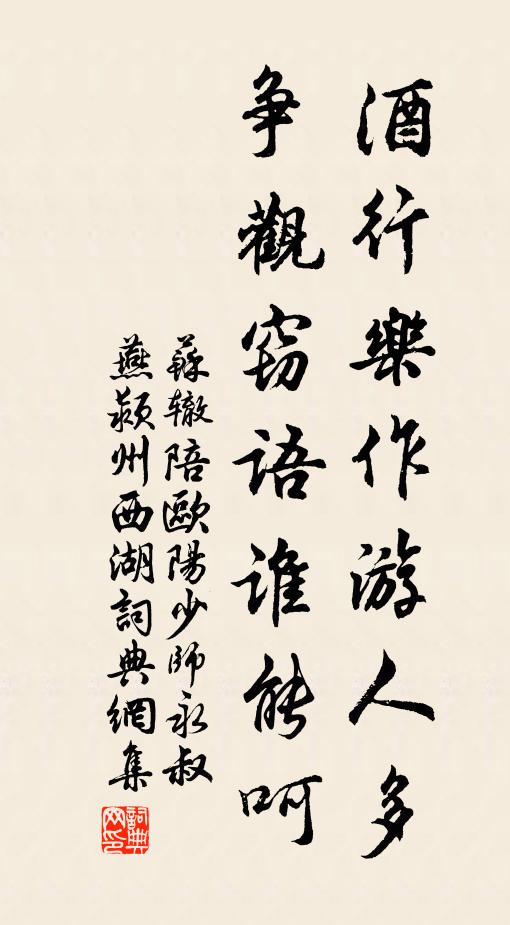 酒行樂作游人多
争觀窃语谁能呵
蘇辙陪歐陽少師永叔
燕颍州西湖詞典網集
詞典
网印